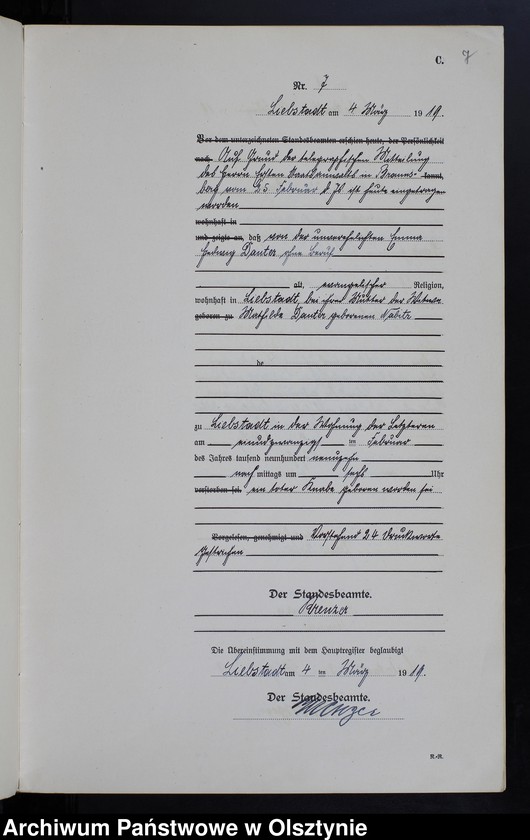 C. 7
Nr. 7
Liebstadt am 4 März 1919.
Vor dem unterzeichneten Standesbeamten erschien heute, der Persönlichkeit
nach Auf Grund der telegraphischen Mitteilung
des Herrn Ersten Staatsanwalts in Brauns- kannt,
berg vom 25. Februar d. Js ist heute eingetragen
worden
wohnhaft in
und zeigte an, daß von der unverehelichten Emma
Hedwig Danter ohne Beruf
alt, evangelischer Religion,
wohnhaft in Liebstadt, bei ihrer Mutter der Witwe
geboren zu Mathilde Danter geborenen
de
zu Liebstadt in der Wohnung der Letzteren
am einundzwanzigs ten Februar
des Jahres tausend neunhundert neunzehn
nach mittags um sechs Uhr
verstorben sei. ein toter Knabe geboren worden sei
Vorgelesen, genehmigt und Vorstehend 24 Druckworte
gestrichen
Der Standesbeamte.
Die Übereinstimmung mit dem Hauptregister beglaubigt
Liebstadt am 4 ten März 1919.
Der Standesbeamte.
R.-R.
Archiwum Państwowe w Olsztynie